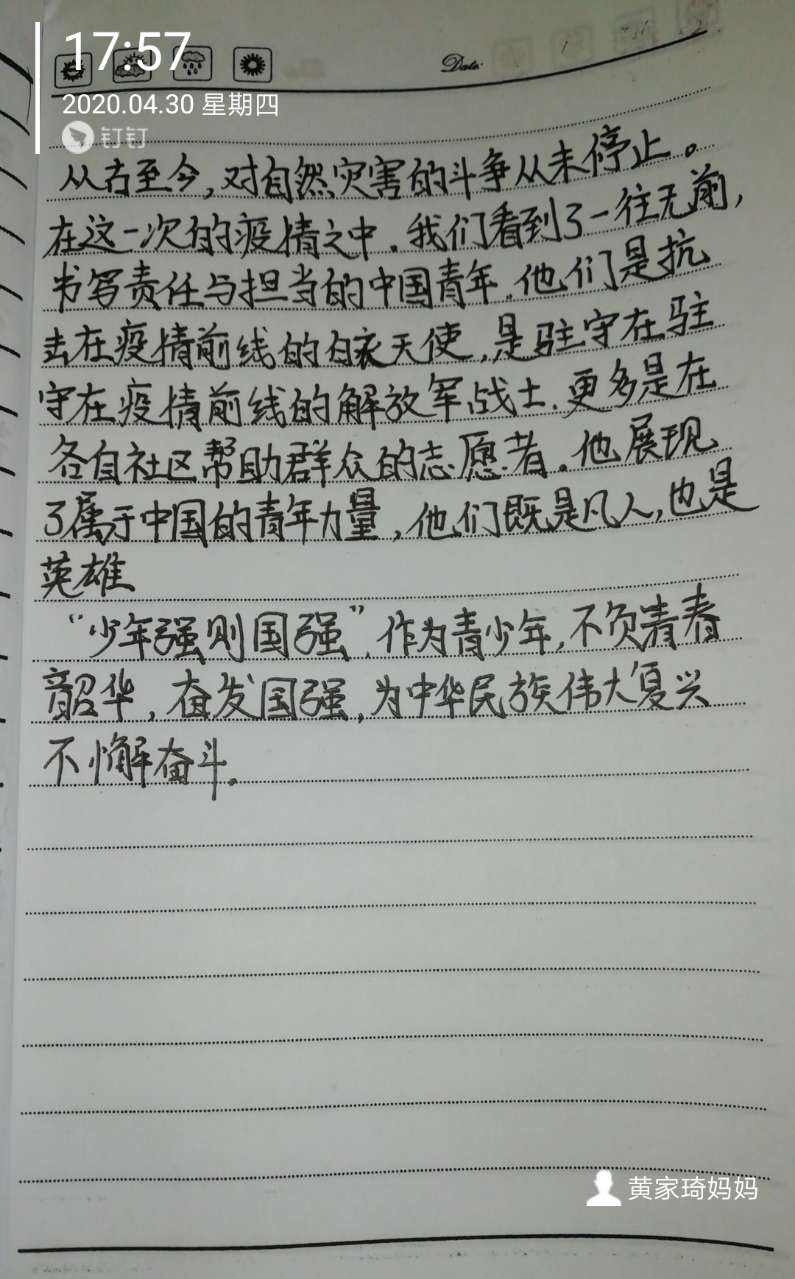 17:57
2020.04.30 星期四
钉钉
Date:
从古至今,对自然灾害的斗争从未停止。
在这一次的疫情之中,我们看到了一往无前,
书写责任与担当的中国青年,他们是抗
击在疫情前线的白衣天使,是驻守在驻
守在疫情前线的解放军战士,更多是在
各自社区帮助群众的志愿者。他展现
了属于中国的青年力量,他们既是凡人,也是
英雄
“少年强则国强”,作为青少年,不负青春
韶华,奋发图强,为中华民族伟大复兴
不懈奋斗。
黄家琦妈妈